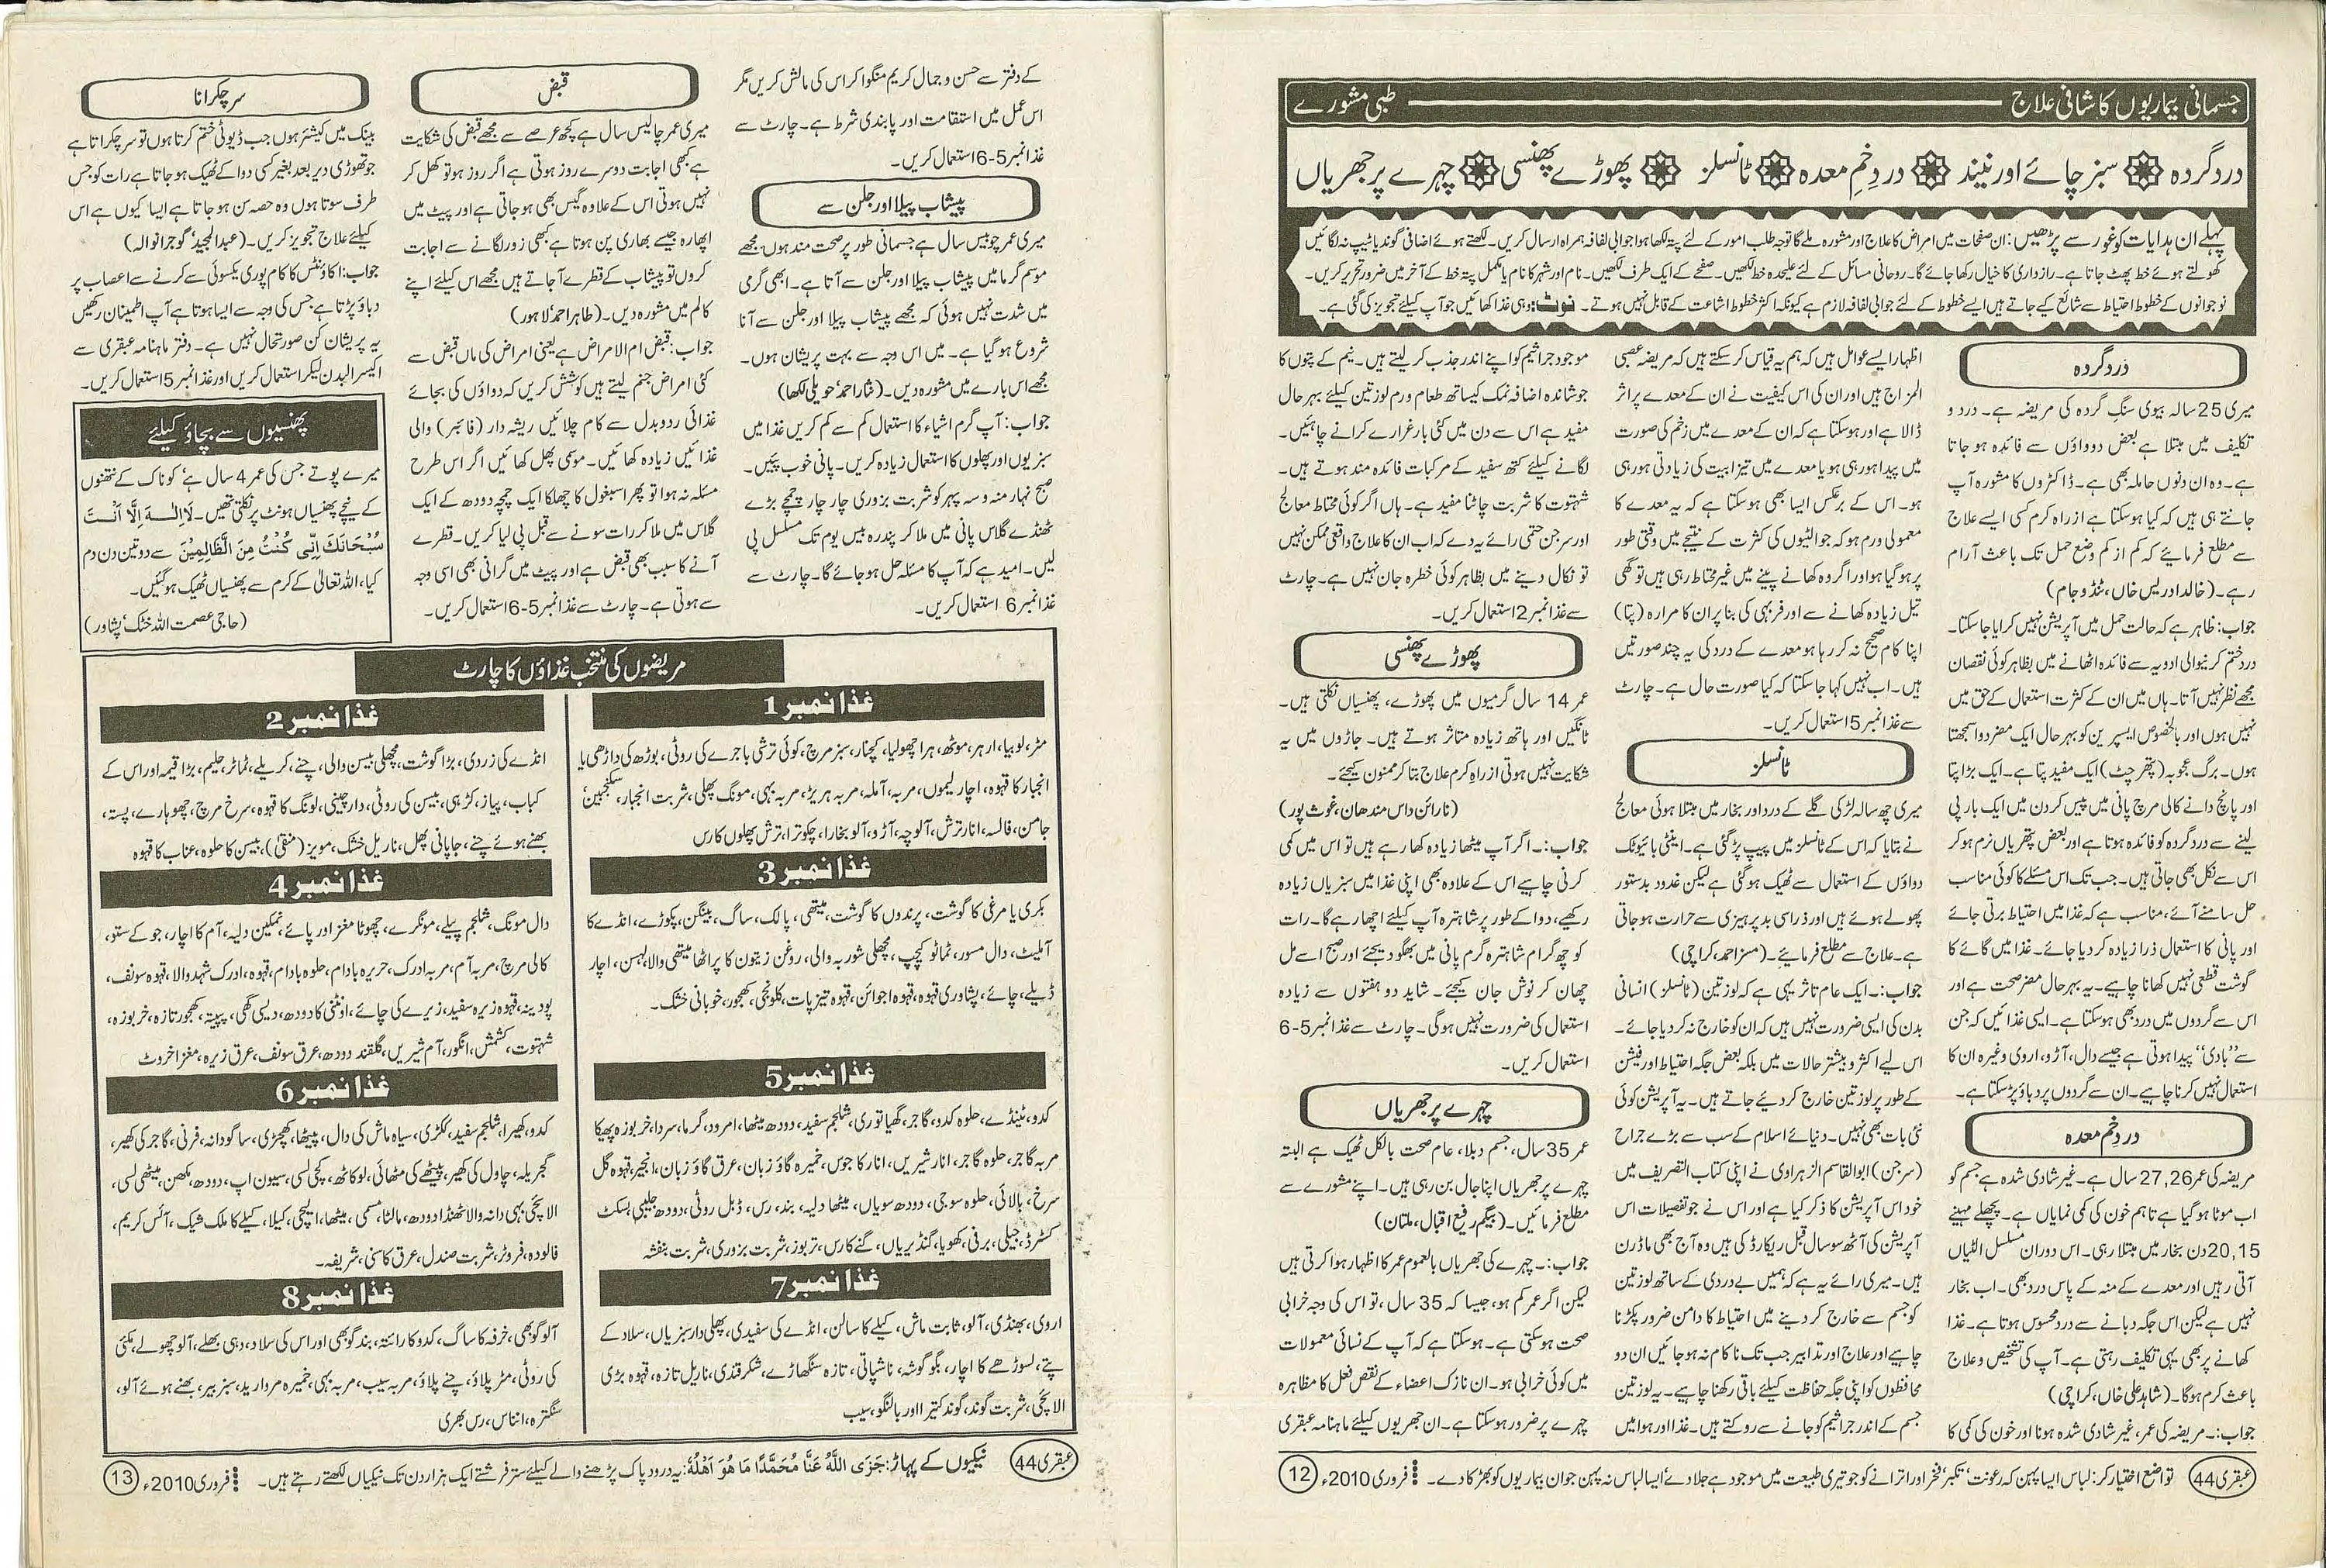 جسمانی بیماریوں کا شافی علاج
طبی مشورے
درد گردہ ۞ سبز چائے اور نیند ۞ درد خم معدہ ۞ ٹانسلز ۞ پھوڑے پھنسی ۞ چہرے پر جھریاں
پہلے ان ہدایات کو غور سے پڑھیں: ان صفحات میں امراض کا علاج اور مشورہ ملے گا توجہ طلب امور کے لئے پتہ لکھا ہوا جوابی لفافہ ہمراہ ارسال کریں۔ لکھتے ہوئے اضافی گوند یا ٹیپ نہ لگائیں
کھولتے ہوئے خط پھٹ جاتا ہے۔ رازداری کا خیال رکھا جائے گا۔ روحانی مسائل کے لئے علیحدہ خط لکھیں۔ صفحے کے ایک طرف لکھیں۔ نام اور شہر کا نام یا مکمل پتہ خط کے آخر میں ضرور تحریر کریں۔
نوجوانوں کے خطوط احتیاط سے شائع کیے جاتے ہیں ایسے خطوط کے لئے جوابی لفافہ لازم ہے کیونکہ اکثر خطوط اشاعت کے قابل نہیں ہوتے۔ نوٹ: وہی غذا کھائیں جو آپ کیلئے تجویز کی گئی ہے۔
درد گردہ
میری 25 سالہ بیوی سنگِ گردہ کی مریضہ ہے۔ درد و
تکلیف میں مبتلا ہے بعض دوواؤں سے فائدہ ہو جاتا
ہے۔ وہ ان دنوں حاملہ بھی ہے۔ ڈاکٹروں کا مشورہ آپ
جانتے ہی ہیں کہ کیا ہوسکتا ہے از راہ کرم کسی ایسے علاج
سے مطلع فرمائیے کہ کم از کم وضع حمل تک باعث آرام
رہے۔ (خالد ادریس خاں، ٹنڈوجام)
جواب: ظاہر ہے کہ حالت حمل میں آپریشن نہیں کرایا جاسکتا۔
درد ختم کرنیوالی ادویہ سے فائدہ اٹھانے میں بظاہر کوئی نقصان
مجھے نظر نہیں آتا۔ ہاں میں ان کے کثرت استعمال کے حق میں
نہیں ہوں اور بالخصوص ایسپرین کو بہرحال ایک مضر دوا سمجھتا
ہوں۔ برگ عجوبہ (پتھر چٹ) ایک مفید پتا ہے۔ ایک بڑا پتا
اور پانچ دانے کالی مرچ پانی میں پیس کر دن میں ایک بار پی
لینے سے درد گردہ کو فائدہ ہوتا ہے اور بعض پتھریاں نرم ہوکر
اس سے نکل بھی جاتی ہیں۔ جب تک اس مسئلے کا کوئی مناسب
حل سامنے آئے، مناسب ہے کہ غذا میں احتیاط برتی جائے
اور پانی کا استعمال ذرا زیادہ کر دیا جائے۔ غذا میں گائے کا
گوشت قطعی نہیں کھانا چاہیے۔ یہ بہرحال مضر صحت ہے اور
اس سے گردوں میں درد بھی ہوسکتا ہے۔ ایسی غذائیں کہ جن
سے ’’بادی‘‘ پیدا ہوتی ہے جیسے دال، آڑو، اروی وغیرہ ان کا
استعمال نہیں کرنا چاہیے۔ ان سے گردوں پر دباؤ پڑ سکتا ہے۔
درد خم معدہ
مریضہ کی عمر 26، 27 سال ہے۔ غیر شادی شدہ ہے جسم گو
اب موٹا ہوگیا ہے تاہم خون کی کمی نمایاں ہے۔ پچھلے مہینے
15، 20 دن بخار میں مبتلا رہی۔ اس دوران مسلسل الٹیاں
آتی رہیں اور معدے کے منہ کے پاس درد بھی۔ اب بخار
نہیں ہے لیکن اس جگہ دبانے سے درد محسوس ہوتا ہے۔ غذا
کھانے پر بھی یہی تکلیف رہتی ہے۔ آپ کی تشخیص و علاج
باعث کرم ہوگا۔ (شاہد علی خاں، کراچی)
جواب:۔ مریضہ کی عمر، غیر شادی شدہ ہونا اور خون کی کمی کا
اظہار ایسے عوامل ہیں کہ ہم یہ قیاس کر سکتے ہیں کہ مریضہ عصبی
المزاج ہیں اور ان کی اس کیفیت نے ان کے معدے پر اثر
ڈالا ہے اور ہوسکتا ہے کہ ان کے معدے میں زخم کی صورت
میں پیدا ہو رہی ہو یا معدے میں تیزابیت کی زیادتی ہو رہی
ہو۔ اس کے برعکس ایسا بھی ہوسکتا ہے کہ یہ معدے کا
معمولی ورم ہو کہ جو الٹیوں کی کثرت کے نتیجے میں وقتی طور
پر ہوگیا ہو اور اگر وہ کھانے پینے میں غیر محتاط رہی ہیں تو گھی
تیل زیادہ کھانے سے اور فربہی کی بنا پر ان کا مرارہ (پتا)
اپنا کام صحیح نہ کر رہا ہو معدے کے درد کی یہ چند صورتیں
ہیں۔ اب نہیں کہا جاسکتا کہ کیا صورت حال ہے۔ چارٹ
سے غذا نمبر 5 استعمال کریں۔
ٹانسلز
میری چھ سالہ لڑکی گلے کے درد اور بخار میں مبتلا ہوئی معالج
نے بتایا کہ اس کے ٹانسلز میں پیپ پڑگئی ہے۔ اینٹی بائیوٹک
دواؤں کے استعمال سے ٹھیک ہوگئی ہے لیکن غدود بدستور
پھولے ہوئے ہیں اور ذرا سی بد پرہیزی سے حرارت ہو جاتی
ہے۔ علاج سے مطلع فرمائیے۔ (مسز احمد، کراچی)
جواب:۔ ایک عام تاثر یہی ہے کہ لوزتین (ٹانسلز) انسانی
بدن کی ایسی ضرورت نہیں ہیں کہ ان کو خارج نہ کر دیا جائے۔
اس لیے اکثر و بیشتر حالات میں بلکہ بعض جگہ احتیاط اور فیشن
کے طور پر لوزتین خارج کر دئیے جاتے ہیں۔ یہ آپریشن کوئی
نئی بات بھی نہیں۔ دنیائے اسلام کے سب سے بڑے جراح
(سرجن) ابوالقاسم الزہراوی نے اپنی کتاب التصریف میں
خود اس آپریشن کا ذکر کیا ہے اور اس نے جو تفصیلات اس
آپریشن کی آٹھ سو سال قبل ریکارڈ کی ہیں وہ آج بھی ماڈرن
ہیں۔ میری رائے یہ ہے کہ ہمیں بے دردی کے ساتھ لوزتین
کو جسم سے خارج کر دینے میں احتیاط کا دامن ضرور پکڑنا
چاہیے اور علاج اور تدابیر جب تک ناکام نہ ہو جائیں ان دو
محافظوں کو اپنی جگہ حفاظت کیلئے باقی رکھنا چاہیے۔ یہ لوزتین
جسم کے اندر جراثیم کو جانے سے روکتے ہیں۔ غذا اور ہوا میں
موجود جراثیم کو اپنے اندر جذب کر لیتے ہیں۔ نیم کے پتوں کا
جوشاندہ اضافہ نمک کیساتھ طعام ورم لوزتین کیلئے بہرحال
مفید ہے اس سے دن میں کئی بار غرارے کرانے چاہئیں۔
لگانے کیلئے کتھ سفید کے مرکبات فائدہ مند ہوتے ہیں۔
شہتوت کا شربت چاٹنا مفید ہے۔ ہاں اگر کوئی محتاط معالج
اور سرجن حتمی رائے یہ دے کہ اب ان کا علاج واقعی ممکن نہیں
تو نکال دینے میں بظاہر کوئی خطرہ جان نہیں ہے۔ چارٹ
سے غذا نمبر 2 استعمال کریں۔
پھوڑے پھنسی
عمر 14 سال گرمیوں میں پھوڑے، پھنسیاں نکلتی ہیں۔
ٹانگیں اور ہاتھ زیادہ متاثر ہوتے ہیں۔ جاڑوں میں یہ
شکایت نہیں ہوتی از راہ کرم علاج بتا کر ممنون کیجئے۔
(نارائن داس مندھان، غوث پور)
جواب:۔ اگر آپ میٹھا زیادہ کھا رہے ہیں تو اس میں کمی
کرنی چاہیے اس کے علاوہ بھی اپنی غذا میں سبزیاں زیادہ
رکھیے، دوا کے طور پر شاہترہ آپ کیلئے اچھا رہے گا۔ رات
کو چھ گرام شاہترہ گرم پانی میں بھگو دیجئے اور صبح اسے مل
چھان کر نوش جان کیجئے۔ شاید دو ہفتوں سے زیادہ
استعمال کی ضرورت نہیں ہوگی۔ چارٹ سے غذا نمبر 5-6
استعمال کریں۔
چہرے پر جھریاں
عمر 35 سال، جسم دبلا، عام صحت بالکل ٹھیک ہے البتہ
چہرے پر جھریاں اپنا جال بن رہی ہیں۔ اپنے مشورے سے
مطلع فرمائیں۔ (بیگم رفیع اقبال، ملتان)
جواب:۔ چہرے کی جھریاں بالعموم عمر کا اظہار ہوا کرتی ہیں
لیکن اگر عمر کم ہو، جیسا کہ 35 سال، تو اس کی وجہ خرابی
صحت ہوسکتی ہے۔ ہوسکتا ہے کہ آپ کے نسائی معمولات
میں کوئی خرابی ہو۔ ان نازک اعضاء کے نقص فعل کا مظاہرہ
چہرے پر ضرور ہوسکتا ہے۔ ان جھریوں کیلئے ماہنامہ عبقری
عبقری 44 تواضع اختیار کر: لباس ایسا پہن کہ رعونت، تکبر، فخر اور اترانے کو جو تیری طبیعت میں موجود ہے جلادے، ایسا لباس نہ پہن جو ان بیماریوں کو بھڑکا دے۔ فروری 2010ء 12
کے دفتر سے حسن و جمال کریم منگوا کر اس کی مالش کریں مگر
اس عمل میں استقامت اور پابندی شرط ہے۔ چارٹ سے
غذا نمبر 5-6 استعمال کریں۔
پیشاب پیلا اور جلن سے
میری عمر چوبیس سال ہے جسمانی طور پر صحت مند ہوں۔ مجھے
موسم گرما میں پیشاب پیلا اور جلن سے آتا ہے۔ ابھی گرمی
میں شدت نہیں ہوئی کہ مجھے پیشاب پیلا اور جلن سے آنا
شروع ہوگیا ہے۔ میں اس وجہ سے بہت پریشان ہوں۔
مجھے اس بارے میں مشورہ دیں۔ (نثار احمد، حویلی لکھا)
جواب: آپ گرم اشیاء کا استعمال کم سے کم کریں غذا میں
سبزیوں اور پھلوں کا استعمال زیادہ کریں۔ پانی خوب پئیں۔
صبح نہار منہ و سہ پہر کو شربت بزوری چار چار چمچے بڑے
ٹھنڈے گلاس پانی میں ملاکر پندرہ بیس یوم تک مسلسل پی
لیں۔ امید ہے کہ آپ کا مسئلہ حل ہوجائے گا۔ چارٹ سے
غذا نمبر 6 استعمال کریں۔
قبض
میری عمر چالیس سال ہے کچھ عرصے سے مجھے قبض کی شکایت
ہے کبھی اجابت دوسرے روز ہوتی ہے اگر روز ہو تو کھل کر
نہیں ہوتی اس کے علاوہ گیس بھی ہو جاتی ہے اور پیٹ میں
اپھارہ جیسے بھاری پن ہوتا ہے کبھی زور لگانے سے اجابت
کروں تو پیشاب کے قطرے آجاتے ہیں مجھے اس کیلئے اپنے
کالم میں مشورہ دیں۔ (طاہر احمد، لاہور)
جواب: قبض ام الامراض ہے یعنی امراض کی ماں قبض سے
کئی امراض جنم لیتے ہیں کوشش کریں کہ دواؤں کی بجائے
غذائی ردوبدل سے کام چلائیں ریشہ دار (فائبر) والی
غذائیں زیادہ کھائیں۔ موسمی پھل کھائیں اگر اس طرح
مسئلہ نہ ہوا تو پھر اسبغول کا چھلکا ایک چمچہ دودھ کے ایک
گلاس میں ملاکر رات سونے سے قبل پی لیا کریں۔ قطرے
آنے کا سبب بھی قبض ہے اور پیٹ میں گرانی بھی اسی وجہ
سے ہوتی ہے۔ چارٹ سے غذا نمبر 5-6 استعمال کریں۔
سر چکرانا
بینک میں کیشئر ہوں جب ڈیوٹی ختم کرتا ہوں تو سر چکراتا ہے
جو تھوڑی دیر بعد بغیر کسی دوا کے ٹھیک ہو جاتا ہے رات کو جس
طرف سوتا ہوں وہ حصہ سن ہو جاتا ہے ایسا کیوں ہے اس
کیلئے علاج تجویز کریں۔ (عبدالمجید، گوجرانوالہ)
جواب: اکاؤنٹس کا کام پوری یکسوئی سے کرنے سے اعصاب پر
دباؤ پڑتا ہے جس کی وجہ سے ایسا ہوتا ہے آپ اطمینان رکھیں
یہ پریشان کن صورتحال نہیں ہے۔ دفتر ماہنامہ عبقری سے
اکسیر البدن لیکر استعمال کریں اور غذا نمبر 5 استعمال کریں۔
پھنسیوں سے بچاؤ کیلئے
میرے پوتے جس کی عمر 4 سال ہے، کو ناک کے نتھنوں
کے نیچے پھنسیاں ہونٹ پر نکلتی تھیں۔ لَا اِلٰهَ اِلَّا اَنْتَ
سُبْحَانَكَ اِنِّى كُنْتُ مِنَ الظَّالِمِيْنَ سے دو تین دن دم
کیا، اللہ تعالیٰ کے کرم سے پھنسیاں ٹھیک ہوگئیں۔
(حاجی عصمت اللہ خٹک، پشاور)
مریضوں کی منتخب غذاؤں کا چارٹ
غذا نمبر 1
مٹر، لوبیا، ارہر، موٹھ، ہرا چھولیا، کچنار، سبز مرچ، کوئی ترشی باجرے کی روٹی، بوڑھ کی داڑھی یا
انجبار کا قہوہ، اچار لیموں، مربہ، آملہ، مربہ ہریڑ، مربہ بہی، مونگ پھلی، شربت انجبار، سکنجبین،
جامن، فالسہ، انار ترش، آلوچہ، آڑو، آلو بخارا، چکوترا، ترش پھلوں کا رس
غذا نمبر 2
انڈے کی زردی، بڑا گوشت، مچھلی بیسن والی، چنے، کریلے، ٹماٹر، حلیم، بڑا قیمہ اور اس کے
کباب، پیاز، کڑہی، بیسن کی روٹی، دارچینی، لونگ کا قہوہ، سرخ مرچ، چھوہارے، پستہ،
بھنے ہوئے چنے، جاپانی پھل، ناریل خشک، مویز (منقیٰ)، بیسن کا حلوہ، عناب کا قہوہ
غذا نمبر 3
بکری یا مرغی کا گوشت، پرندوں کا گوشت، میتھی، پالک، ساگ، بینگن، پکوڑے، انڈے کا
آملیٹ، دال مسور، ٹماٹو کیچپ، مچھلی شوربہ والی، روغن زیتون کا پراٹھا میتھی والا، لہسن، اچار
ڈیلے، چائے، پشاوری قہوہ، قہوہ اجوائن، قہوہ تیز پات، کلونجی، کھجور، خوبانی خشک۔
غذا نمبر 4
دال مونگ، شلجم پیلے، مونگرے، چھوٹا مغز اور پائے، نمکین دلیہ، آم کا اچار، جو کے ستو،
کالی مرچ، مربہ آم، مربہ ادرک، حریرہ بادام، حلوہ بادام، قہوہ، ادرک شہد والا، قہوہ سونف،
پودینہ، قہوہ زیرہ سفید، زیرے کی چائے، اونٹنی کا دودھ، دیسی گھی، پپیتہ، کھجور تازہ، خربوزہ،
شہتوت، کشمش، انگور، آم شیریں، گلقند دودھ، عرق سونف، عرق زیرہ، مغز اخروٹ
غذا نمبر 5
کدو، ٹینڈے، حلوہ کدو، گاجر، گھیا توری، شلجم سفید، دودھ میٹھا، امرود، گرما، سردا، خربوزہ پھیکا
مربہ گاجر، حلوہ گاجر، انار شیریں، انار کا جوس، خمیرہ گاؤ زبان، عرق گاؤ زبان، انجیر، قہوہ گل
سرخ، بالائی، حلوہ سوجی، دودھ سویاں، میٹھا دلیہ، بند، رس، ڈبل روٹی، دودھ جلیبی، بسکٹ
کسٹرڈ، جیلی، برفی، کھویا، گنڈیریاں، گنے کا رس، تربوز، شربت بزوری، شربت بنفشہ
غذا نمبر 6
کدو، کھیرا، شلجم سفید، ککڑی، سیاہ ماش کی دال، پیٹھا، کھچڑی، ساگودانہ، فرنی، گاجر کی کھیر،
گجریلہ، چاول کی کھیر، پیٹھے کی مٹھائی، لوکاٹھ، کچی لسی، سیون اپ، دودھ، مکھن، میٹھی لسی،
الائچی بہی دانہ والا ٹھنڈا دودھ، مالٹا، مسمی، میٹھا، لیچی، کیلا، کیلے کا ملک شیک، آئس کریم،
فالودہ، فروٹر، شربت صندل، عرق کاسنی، شریفہ۔
غذا نمبر 7
اروی، بھنڈی، آلو، ثابت ماش، کیلے کا سالن، انڈے کی سفیدی، پھلی دار سبزیاں، سلاد کے
پتے، لسوڑھے کا اچار، بگو گوشہ، ناشپاتی، تازہ سنگھاڑے، شکر قندی، ناریل تازہ، قہوہ بڑی
الائچی، شربت گوند، گوند کتیرا اور بالنگو، سیب
غذا نمبر 8
آلو گوبھی، خرفہ کا ساگ، کدو کا رائتہ، بند گوبھی اور اس کی سلاد، دہی بھلے، آلو چھولے، مکئی
کی روٹی، مٹر پلاؤ، چنے پلاؤ، مربہ سیب، مربہ بہی، خمیرہ مروارید، سبز بیر، بھنے ہوئے آلو،
سنگترہ، انناس، رس بھری
عبقری 44 نیکیوں کے پہاڑ: جَزَى اللّٰهُ عَنَّا مُحَمَّدًا مَا هُوَ اَهْلُهٗ: یہ درود پاک پڑھنے والے کیلئے ستر فرشتے ایک ہزار دن تک نیکیاں لکھتے رہتے ہیں۔ فروری 2010ء 13